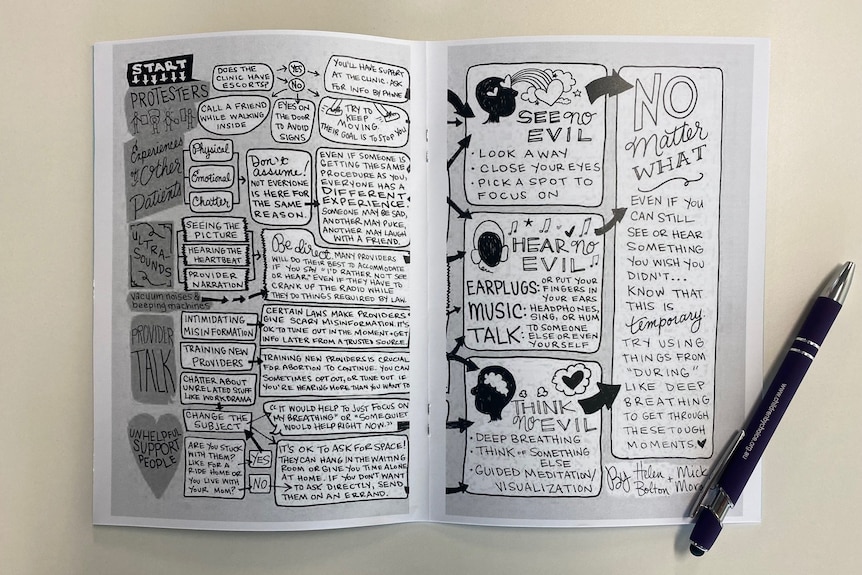 START
PROTESTERS
DOES THE
CLINIC HAVE
ESCORTS?
YES
NO
YOU'LL HAVE SUPPORT
AT THE CLINIC. ASK
FOR INFO BY PHONE
CALL A FRIEND
WHILE WALKING
INSIDE
EYES ON
THE DOOR
TO AVOID
SIGNS
TRY TO
KEEP
MOVING.
THEIR GOAL IS TO STOP YOU
Experiences
of Other
Patients
Physical
Emotional
Chatter
Don't
assume!
NOT EVERYONE
IS HERE FOR
THE SAME
REASON.
EVEN IF SOMEONE IS
GETTING THE SAME
PROCEDURE AS YOU,
EVERYONE HAS A
DIFFERENT
EXPERIENCE.
SOMEONE MAY BE SAD,
ANOTHER MAY PUKE,
ANOTHER MAY LAUGH
WITH A FRIEND.
ULTRA-
SOUNDS
SEEING THE
PICTURE
HEARING THE
HEARTBEAT
PROVIDER
NARRATION
Be direct. MANY PROVIDERS
WILL DO THEIR BEST TO ACCOMMODATE
IF YOU SAY "I'D RATHER NOT SEE
OR HEAR." EVEN IF THEY HAVE TO
CRANK UP THE RADIO WHILE
THEY DO THINGS REQUIRED BY LAW.
vacuum noises &
beeping machines
PROVIDER
TALK
INTIMIDATING
MISINFORMATION
CERTAIN LAWS MAKE PROVIDERS
GIVE SCARY MISINFORMATION. IT'S
OK TO TUNE OUT IN THE MOMENT & GET
INFO LATER FROM A TRUSTED SOURCE.
TRAINING NEW
PROVIDERS
TRAINING NEW PROVIDERS IS CRUCIAL
FOR ABORTION TO CONTINUE. YOU CAN
SOMETIMES OPT OUT, OR TUNE OUT IF
YOU'RE HEARING MORE THAN YOU WANT TO
CHATER ABOUT
UNRELATED STUFF
LIKE WORK DRAMA
CHANGE THE
SUBJECT
"IT WOULD HELP TO JUST FOCUS ON
MY BREATHING" OR "SOME QUIET
WOULD HELP RIGHT NOW."
UNHELPFUL
SUPPORT
PEOPLE
ARE YOU STUCK
WITH THEM?
LIKE FOR A
RIDE HOME OR
YOU LIVE WITH
YOUR MOM?
YES
NO
IT'S OK TO ASK FOR SPACE!
THEY CAN HANG IN THE WAITING
ROOM OR GIVE YOU TIME ALONE
AT HOME. IF YOU DON'T WANT
TO ASK DIRECTLY, SEND
THEM ON AN ERRAND.
SEE no
EVIL
• LOOK AWAY
• CLOSE YOUR EYES
• PICK A SPOT TO
FOCUS ON
HEAR no
EVIL
EARPLUGS: OR PUT YOUR
FINGERS IN
YOUR EARS
MUSIC: HEADPHONES,
SING, OR HUM
TALK: TO SOMEONE
ELSE OR EVEN
YOURSELF
THINK
no EVIL
• DEEP BREATHING
• THINK OF SOMETHING
ELSE
• GUIDED MEDITATION/
VISUALIZATION
NO
Matter
WHAT
EVEN IF YOU
CAN STILL
SEE OR HEAR
SOMETHING
YOU WISH YOU
DIDN'T...
KNOW THAT
THIS IS
temporary.
TRY USING
THINGS FROM
"DURING"
LIKE DEEP
BREATHING
TO GET THROUGH
THESE TOUGH
MOMENTS.
By Helen + Mick
Bolton
www.childrenbychoice.org.au